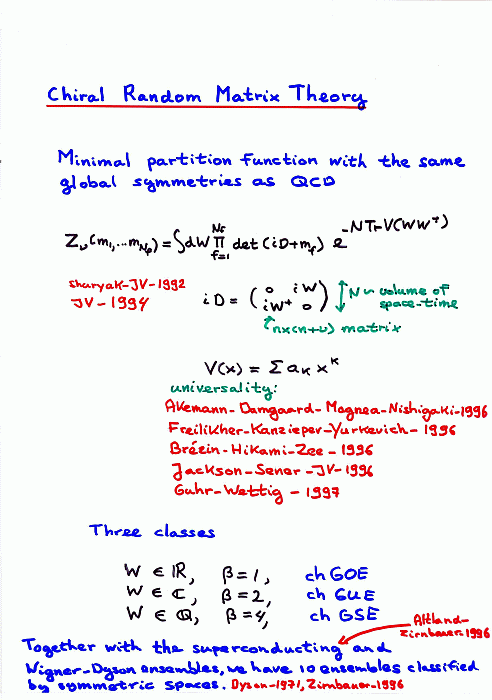 Chiral Random Matrix Theory
Minimal partition function with the same
global symmetries as QCD
Z_ν(m_1,...m_{N_f}) = ∫dW ∏_{f=1}^{N_f} det(iD+m_f) e^{-NTrV(WW^+)}
Shuryak-JV-1992
JV-1994
iD = ( 0 iW
iW^+ 0 ) ↕ N ~ volume of
space-time
n×(n+ν) matrix
V(x) = Σ a_K x^K
universality:
Akemann-Damgaard-Magnea-Nishigaki-1996
Freilikher-Kanzieper-Yurkevich-1996
Brézin-Hikami-Zee-1996
Jackson-Sener-JV-1996
Guhr-Wettig-1997
Three classes
W ∈ ℝ, β=1, ch GOE
W ∈ ℂ, β=2, ch GUE
W ∈ ℚ, β=4, ch GSE
Altland-
Zirnbauer-1996
Together with the superconducting and
Wigner-Dyson ensembles, we have 10 ensembles classified
by symmetric spaces. Dyson-1971, Zirnbauer-1996